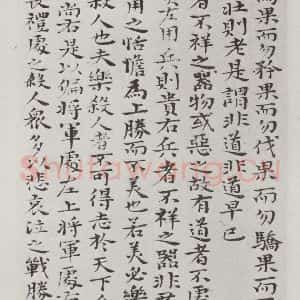 爲果而勿矜果而勿伐果而勿驕果而
壯則老是謂非道非道早已
者不祥之器物或惡故有道者不處
左用兵則貴右兵者不祥之器非
用之恬憺爲上勝而不美也若美必樂
殺人也夫樂殺人者不可得志於天下
尚右是以偏將軍處左上將軍處右
喪禮處之殺人衆多以悲哀泣之戰勝